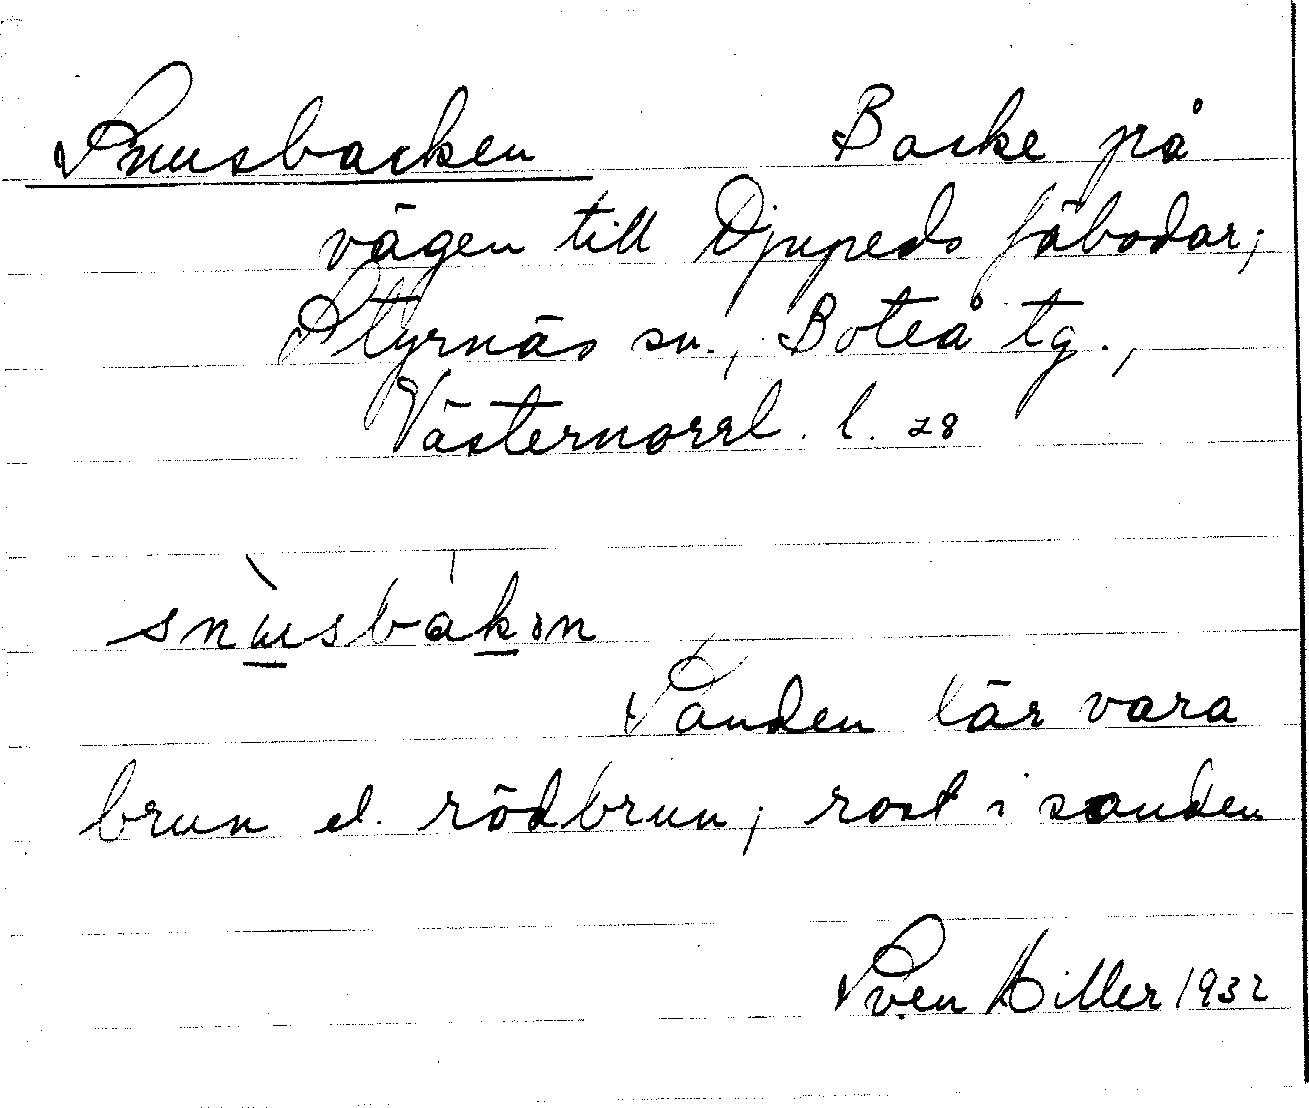 Snusbacken Backe på
vägen till Djupeds fäbodar;
Styrnäs sn., Boteå tg.,
Västernorrl. l. 28
snùsbàkɘn
Sanden lär vara
brun el. rödbrun; rost i sanden
Sven Hiller 1932